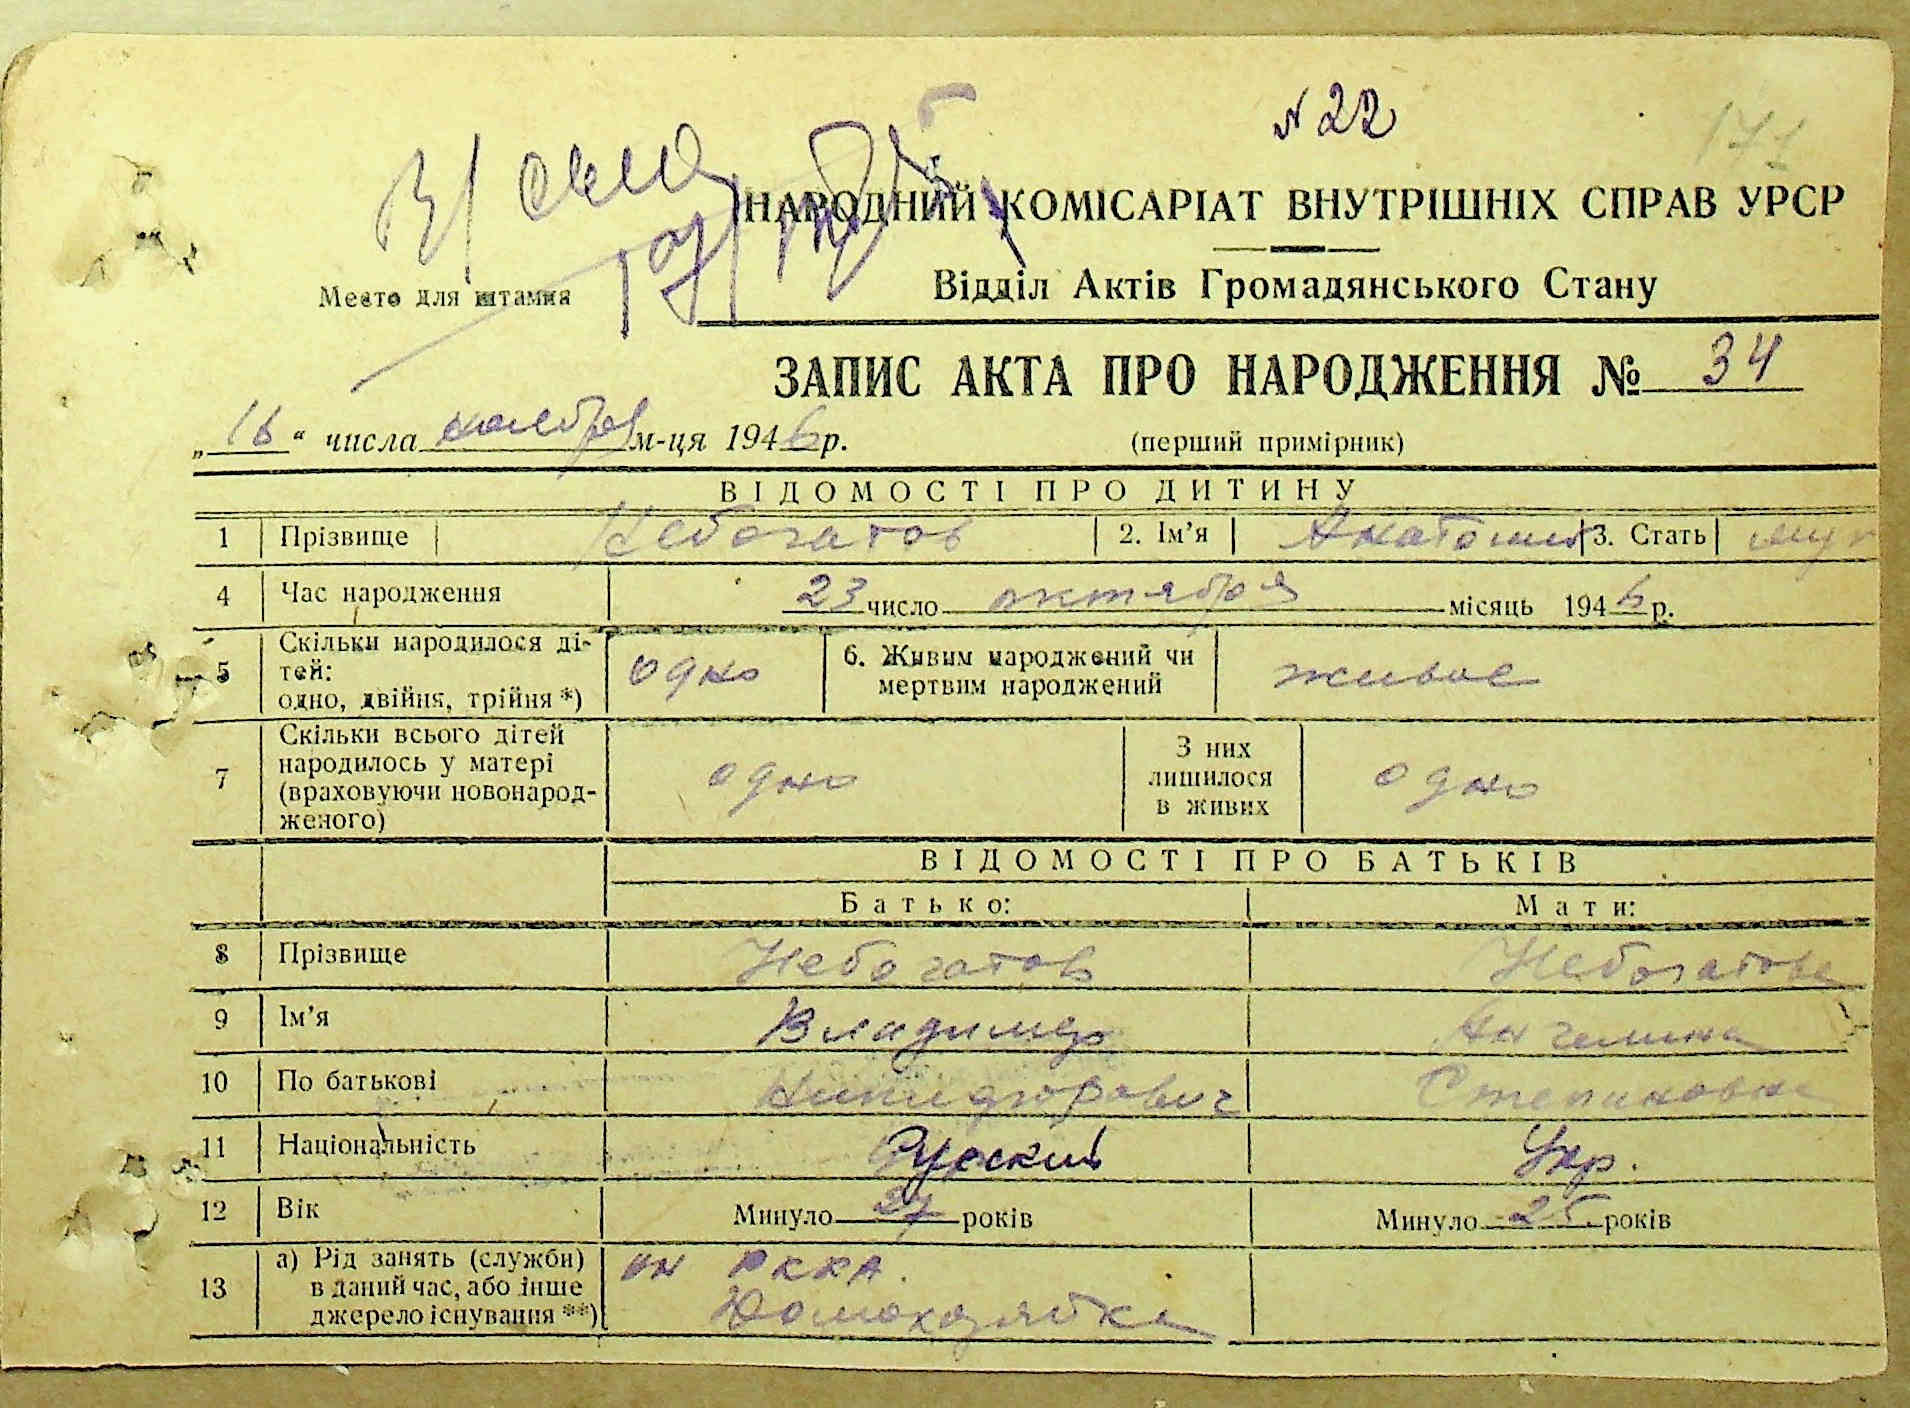 № 22
171
НАРОДНИЙ КОМІСАРІАТ ВНУТРІШНІХ СПРАВ УРСР
Место для штампа
Відділ Актів Громадянського Стану
ЗАПИС АКТА ПРО НАРОДЖЕННЯ № 34
„16“ числа ноября м-ця 1946 р. (перший примірник)
ВІДОМОСТІ ПРО ДИТИНУ
1 Прізвище Небогатов 2. Ім'я Анатолий 3. Стать муж
4 Час народження 23 число октября місяць 1946 р.
5 Скільки народилося ді-
тей:
одно, двійня, трійня *) одно 6. Живим народжений чи
мертвим народжений живое
7 Скільки всього дітей
народилось у матері
(враховуючи новонарод-
женого) одно З них
лишилося
в живих одно
ВІДОМОСТІ ПРО БАТЬКІВ
Батько: Мати:
8 Прізвище Небогатов Небогатова
9 Ім'я Владимир Ангелина
10 По батькові Степановна
11 Національність Русский Укр.
12 Вік Минуло 27 років Минуло 25 років
13 а) Рід занять (служби)
в даний час, або інше
джерело існування **) он РККА.
Домохозяйка